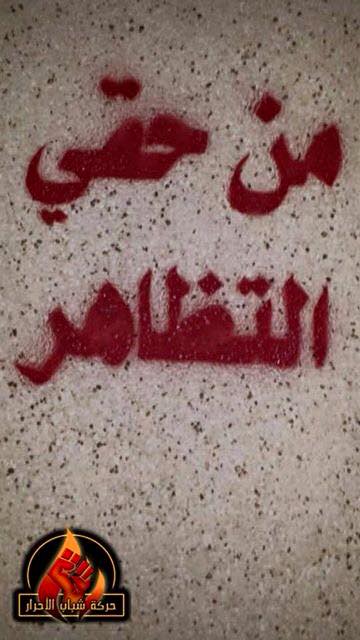 من حقي
التظاهر
حركة شباب الأحرار